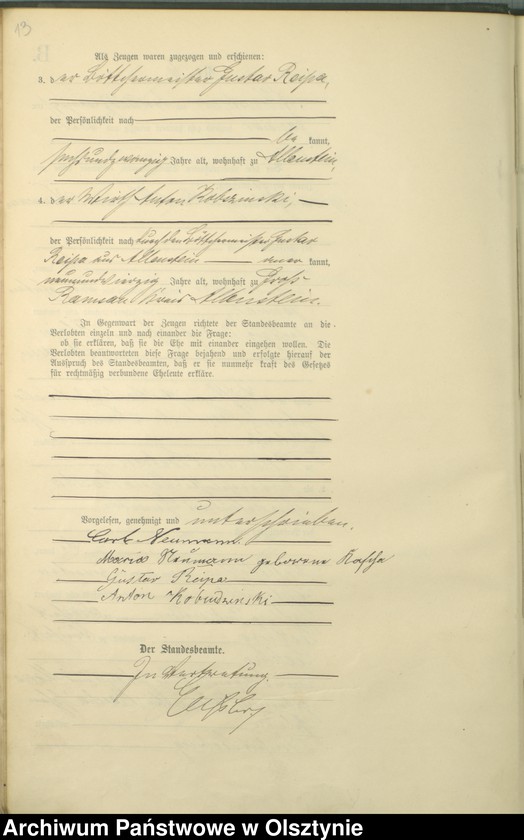 13
Als Zeugen waren zugezogen und erschienen:
3. der Böttchermeister Gustav Reipa,
der Persönlichkeit nach
be kannt,
sechsundzwanzig Jahre alt, wohnhaft zu Allenstein,
4. der Wirth Anton Kobszinski,
der Persönlichkeit nach durch den Böttchermeister Gustav
Reipa aus Allenstein aner kannt,
neunundvierzig Jahre alt, wohnhaft zu Groß
Ramsau Kreis Allenstein.
In Gegenwart der Zeugen richtete der Standesbeamte an die
Verlobten einzeln und nach einander die Frage:
ob sie erklären, daß sie die Ehe mit einander eingehen wollen. Die
Verlobten beantworteten diese Frage bejahend und erfolgte hierauf der
Ausspruch des Standesbeamten, daß er sie nunmehr kraft des Gesetzes
für rechtmäßig verbundene Eheleute erkläre.
Vorgelesen, genehmigt und unterschrieben.
Carl Neumann
Maria Neumann geborene Kascha
Gustav Reipa
Anton Kobudzinski
Der Standesbeamte.
In Vertretung.
Archiwum Państwowe w Olsztynie